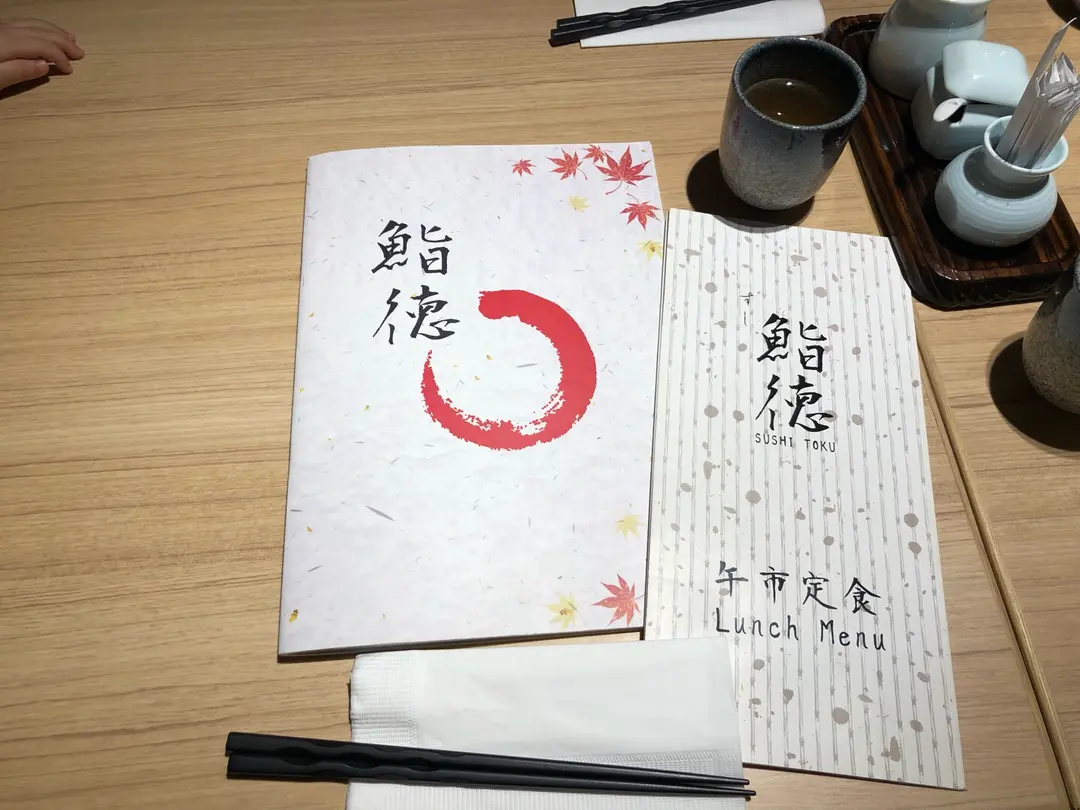 鮨
徳
すし
鮨
徳
SUSHI TOKU
午市定食
Lunch Menu